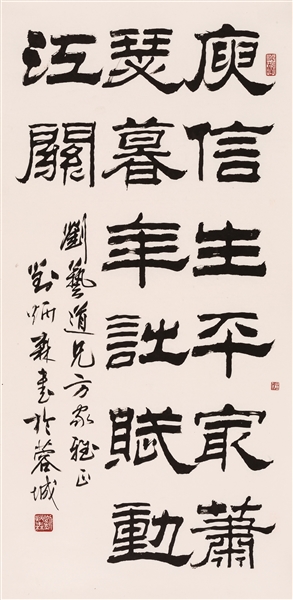 庾信生平冣蕭
瑟暮年詩賦動
江關
劉藝道兄方家雅正
劉炳森書於蓉城